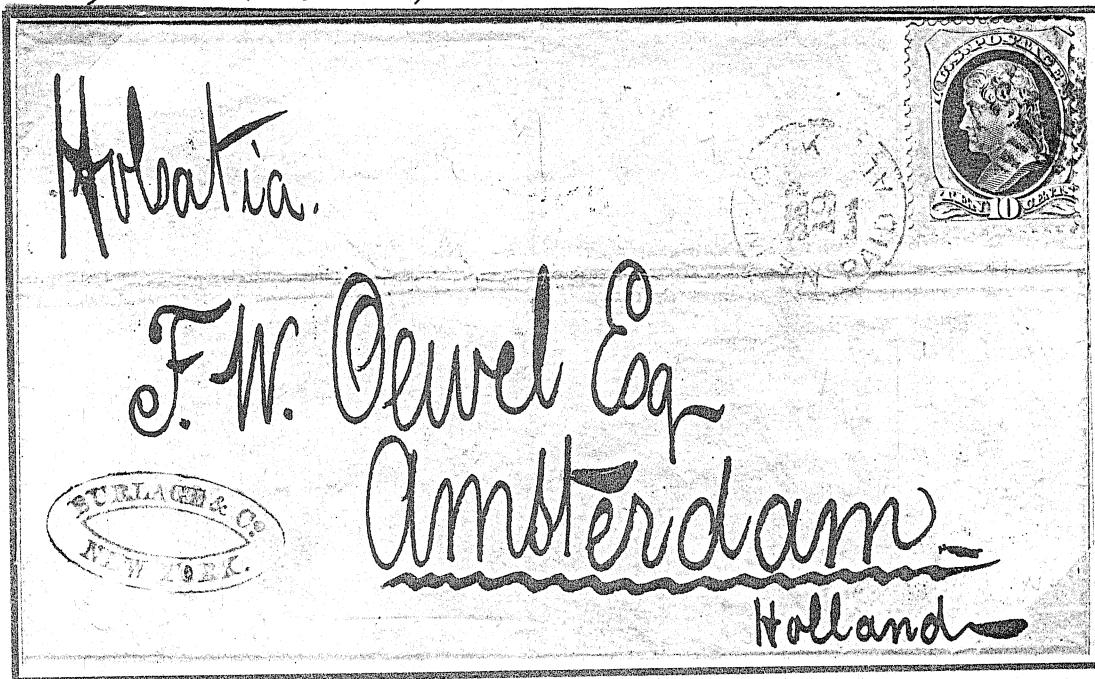 Holsatia.
U.S. POSTAGE
TEN 10 CENTS
NEW YORK
PAID ALL
F. W. Oewel Esq
Amsterdam
Holland
BURLAGE & Co.
NEW YORK.